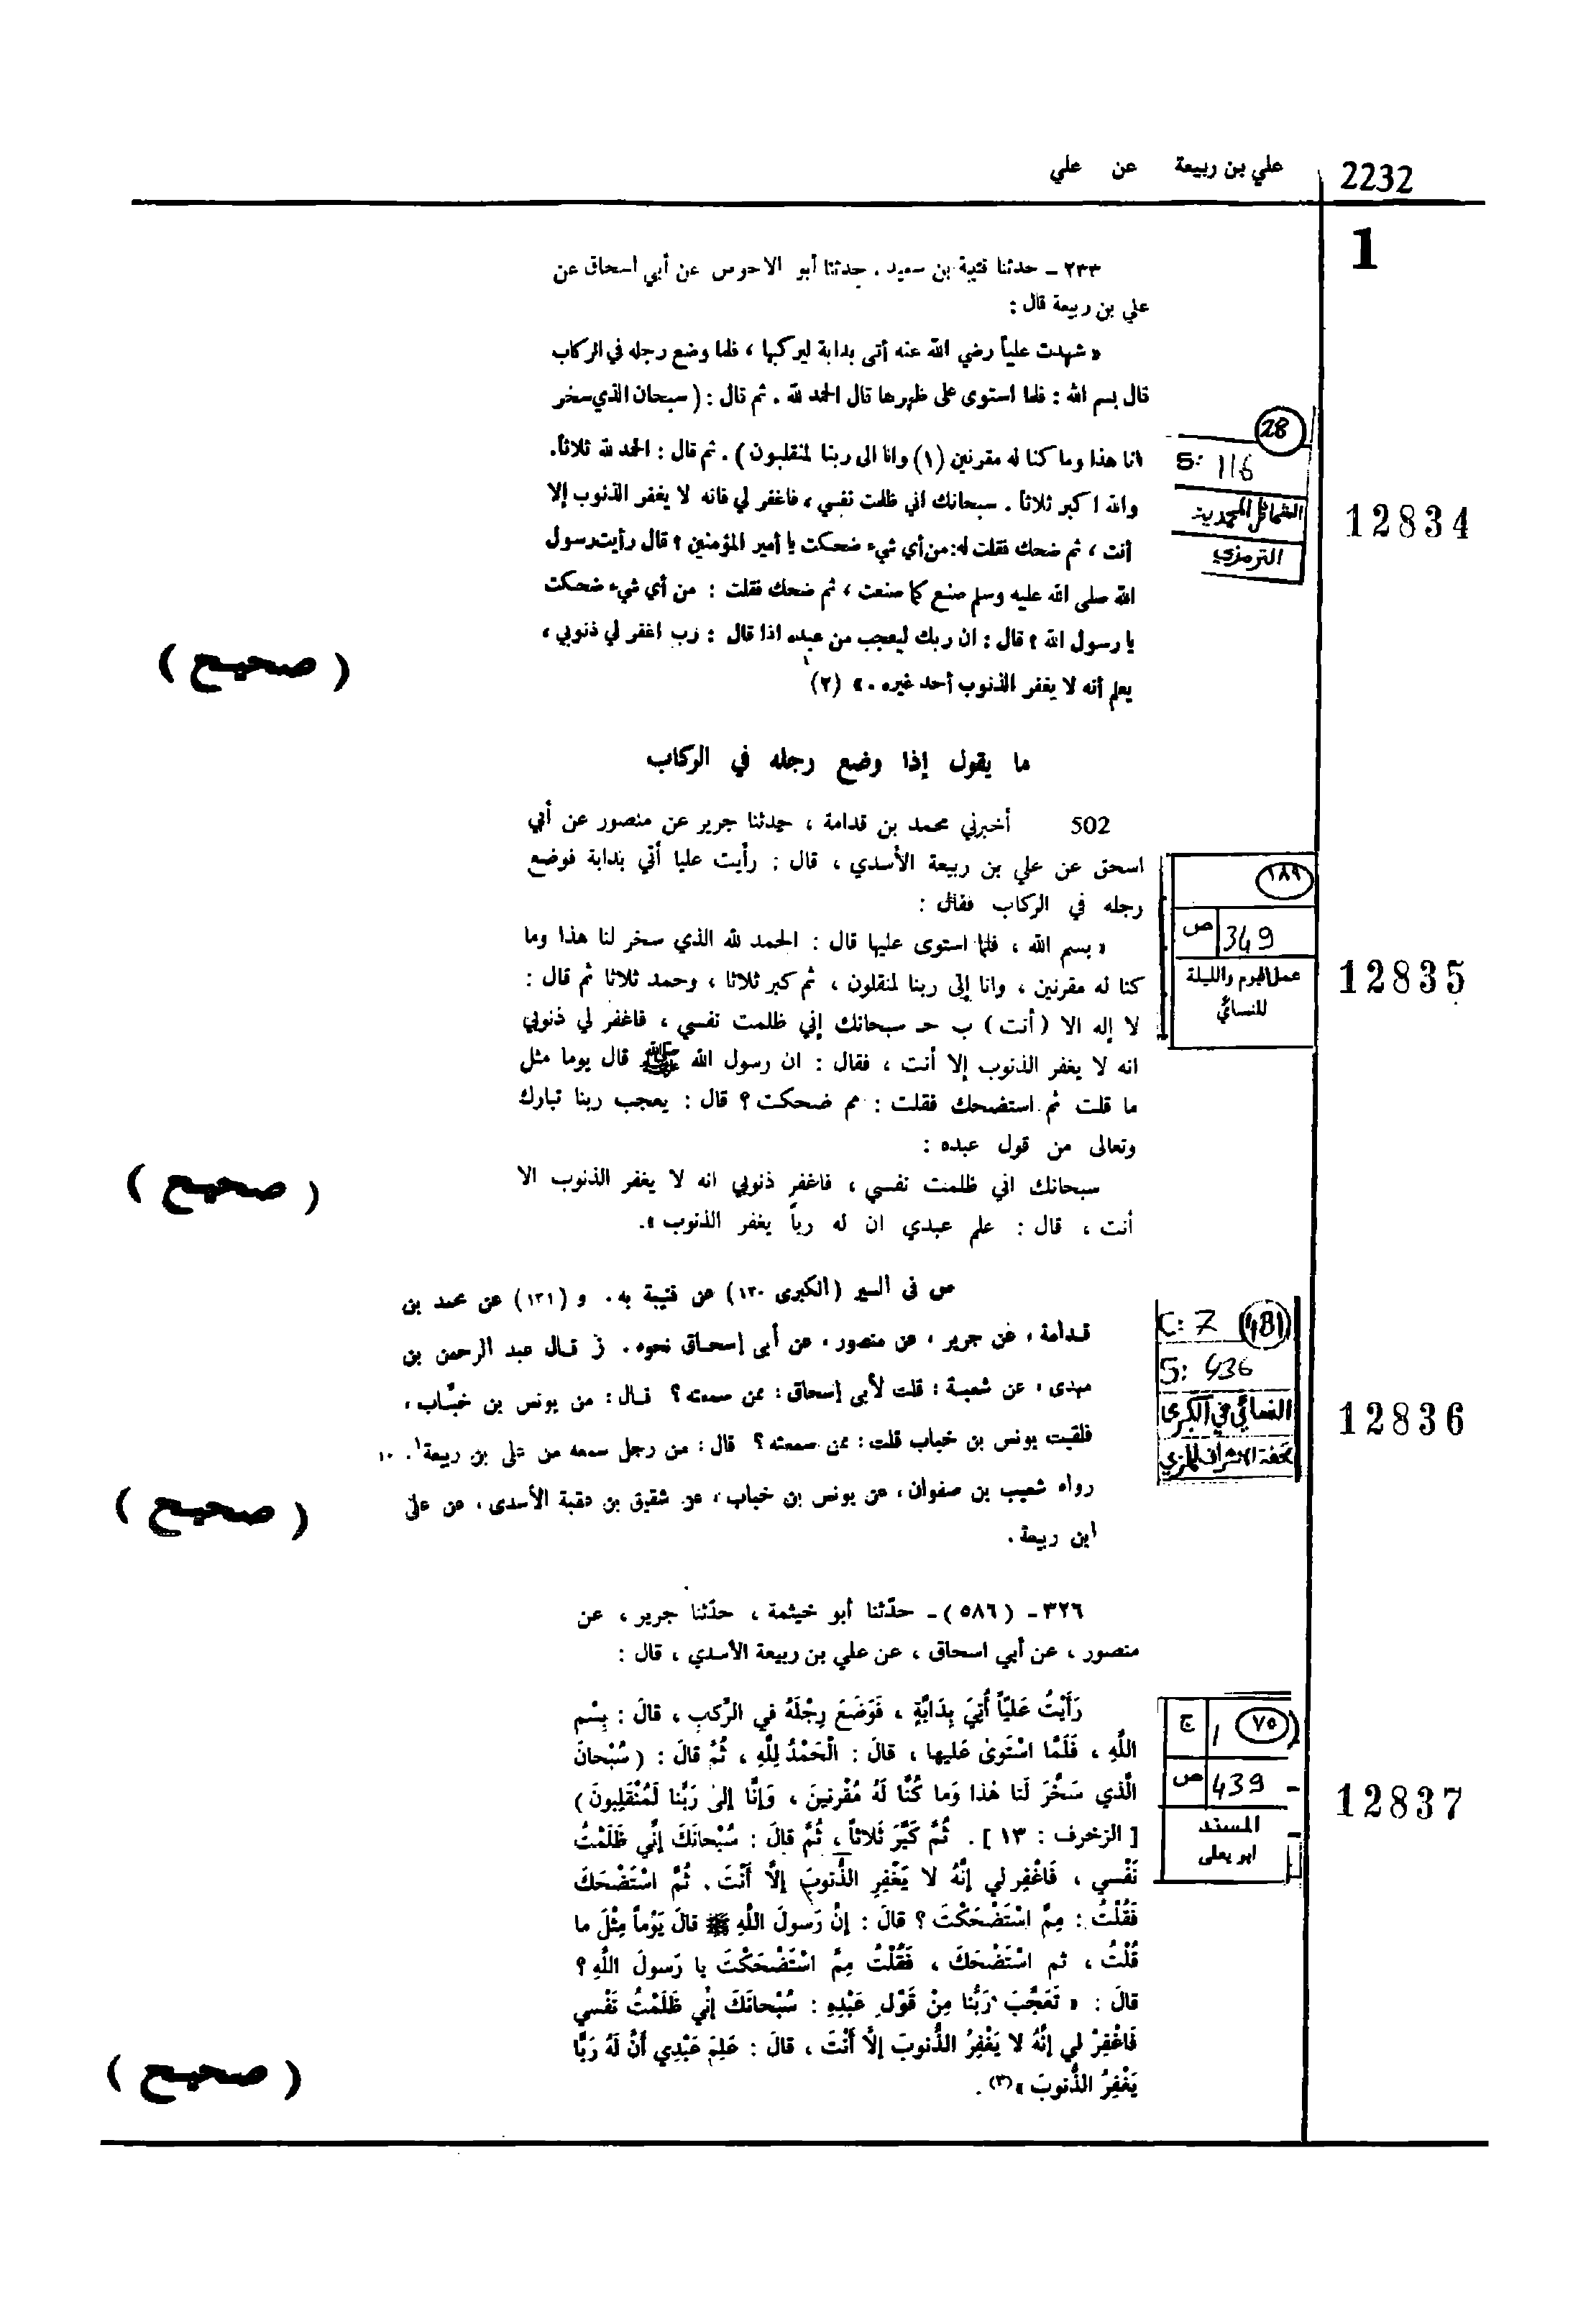 علي بن ربيعة عن علي
2232
1
٢٣٣ - حدثنا قتيبة بن سعيد . حدثنا أبو الاحوص عن أبي اسحاق عن
علي بن ربيعة قال :
« شهدت علياً رضي الله عنه أتى بدابة ليركبها ، فلما وضع رجله في الركاب
قال بسم الله : فلما استوى على ظهرها قال الحمد لله . ثم قال : ( سبحان الذي سخر
لنا هذا وما كنا له مقرنين (١) وانا الى ربنا لمنقلبون ) . ثم قال : الحمد لله ثلاثاً .
والله اكبر ثلاثاً . سبحانك اني ظلمت نفسي ، فاغفر لي فانه لا يغفر الذنوب إلا
أنت ، ثم ضحك فقلت له: من أي شيء ضحكت يا أمير المؤمنين ؟ قال رأيت رسول
الله صلى الله عليه وسلم صنع كما صنعت ، ثم ضحك فقلت : من أي شيء ضحكت
يا رسول الله ؟ قال : ان ربك ليعجب من عبده اذا قال : رب اغفر لي ذنوبي ،
يعلم أنه لا يغفر الذنوب أحد غيره . » (٢)
( صحيح )
28
5: 116
الشمائل المحمدية
الترمذي
12834
ما يقول إذا وضع رجله في الركاب
502 أخبرني محمد بن قدامة ، حدثنا جرير عن منصور عن أبي
اسحق عن علي بن ربيعة الأسدي ، قال : رأيت عليا أتي بدابة فوضع
رجله في الركاب فقال :
« بسم الله ، فلما استوى عليها قال : الحمد لله الذي سخر لنا هذا وما
كنا له مقرنين ، وانا إلى ربنا لمنقلون ، ثم كبر ثلاثا ، وحمد ثلاثا ثم قال :
لا إله الا ( أنت ) ب حـ سبحانك إني ظلمت نفسي ، فاغفر لي ذنوبي
انه لا يغفر الذنوب إلا أنت ، فقال : ان رسول الله ﷺ قال يوما مثل
ما قلت ثم استضحك فقلت : مم ضحكت ؟ قال : يعجب ربنا تبارك
وتعالى من قول عبده :
سبحانك اني ظلمت نفسي ، فاغفر ذنوبي انه لا يغفر الذنوب الا
أنت ، قال : علم عبدي ان له رباً يغفر الذنوب » .
( صحيح )
١٨٩
ص 349
عمل اليوم والليلة
للنسائي
12835
س فى السير (الكبرى ١٣٠) عن قتيبة به . و (١٣١) عن محمد بن
قدامة ، عن جرير ، عن منصور ، عن أبى إسحاق نحوه . ز قال عبد الرحمن بن
مهدى ، عن شعبة : قلت لأبى إسحاق : ممن سمعته ؟ قال : من يونس بن خباب ،
فلقيت يونس بن خباب قلت : ممن سمعته ؟ قال : من رجل سمعه من على بن ربيعة . ١٠
رواه شعيب بن صفوان ، عن يونس بن خباب ، عن شقيق بن عقبة الأسدى ، عن على
ابن ربيعة .
( صحيح )
C: 7
5: 436
النسائي في الكبرى
تحفة الاشراف للمزي
12836
٣٢٦ - (٥٨٦) - حدّثنا أبو خيثمة ، حدّثنا جرير ، عن
منصور ، عن أبي اسحاق ، عن علي بن ربيعة الأسدي ، قال :
رَأَيْتُ عَلِيّاً أُتِيَ بِدَابَّةٍ ، فَوَضَعَ رِجْلَهُ في الرِّكَبِ ، قالَ : بِسْمِ
اللَّهِ ، فَلَمَّا اسْتَوىٰ عَليها ، قالَ : الْحَمْدُ لِلَّهِ ، ثُمَّ قالَ : ( سُبْحانَ
الَّذي سَخَّرَ لَنا هٰذا وَما كُنَّا لَهُ مُقْرنينَ ، وَإِنَّا إِلىٰ رَبِّنا لَمُنْقَلِبونَ )
[ الزخرف : ١٣ ] . ثُمَّ كَبَّرَ ثَلاثاً ، ثُمَّ قالَ : سُبْحانَكَ إِنِّي ظَلَمْتُ
نَفْسي ، فَاغْفِر لي إِنَّهُ لا يَغْفِرِ الذُّنوبَ إِلَّا أَنْتَ . ثُمَّ اسْتَضْحَكَ
فَقُلْتُ : مِمَّ اسْتَضْحَكْتَ ؟ قالَ : إِنَّ رَسولَ اللَّهِ ﷺ قالَ يَوْماً مِثْلَ ما
قُلْتُ ، ثم اسْتَضْحَكَ ، فَقُلْتُ مِمَّ اسْتَضْحَكْتَ يا رَسولَ اللَّهِ ؟
قالَ : « تَعَجَّبَ رَبُّنا مِنْ قَوْلِ عَبْدِهِ : سُبْحانَكَ إِنِّي ظَلَمْتُ نَفْسي
فَاغْفِرْ لي إِنَّهُ لا يَغْفِرُ الذُّنوبَ إِلَّا أَنْتَ ، قالَ : عَلِمَ عَبْدِي أَنَّ لَهُ رَبًّا
يَغْفِرُ الذُّنوبَ »(٣) .
( صحيح )
ج ١ ٧٥
ص 439
المسند
ابو يعلى
12837